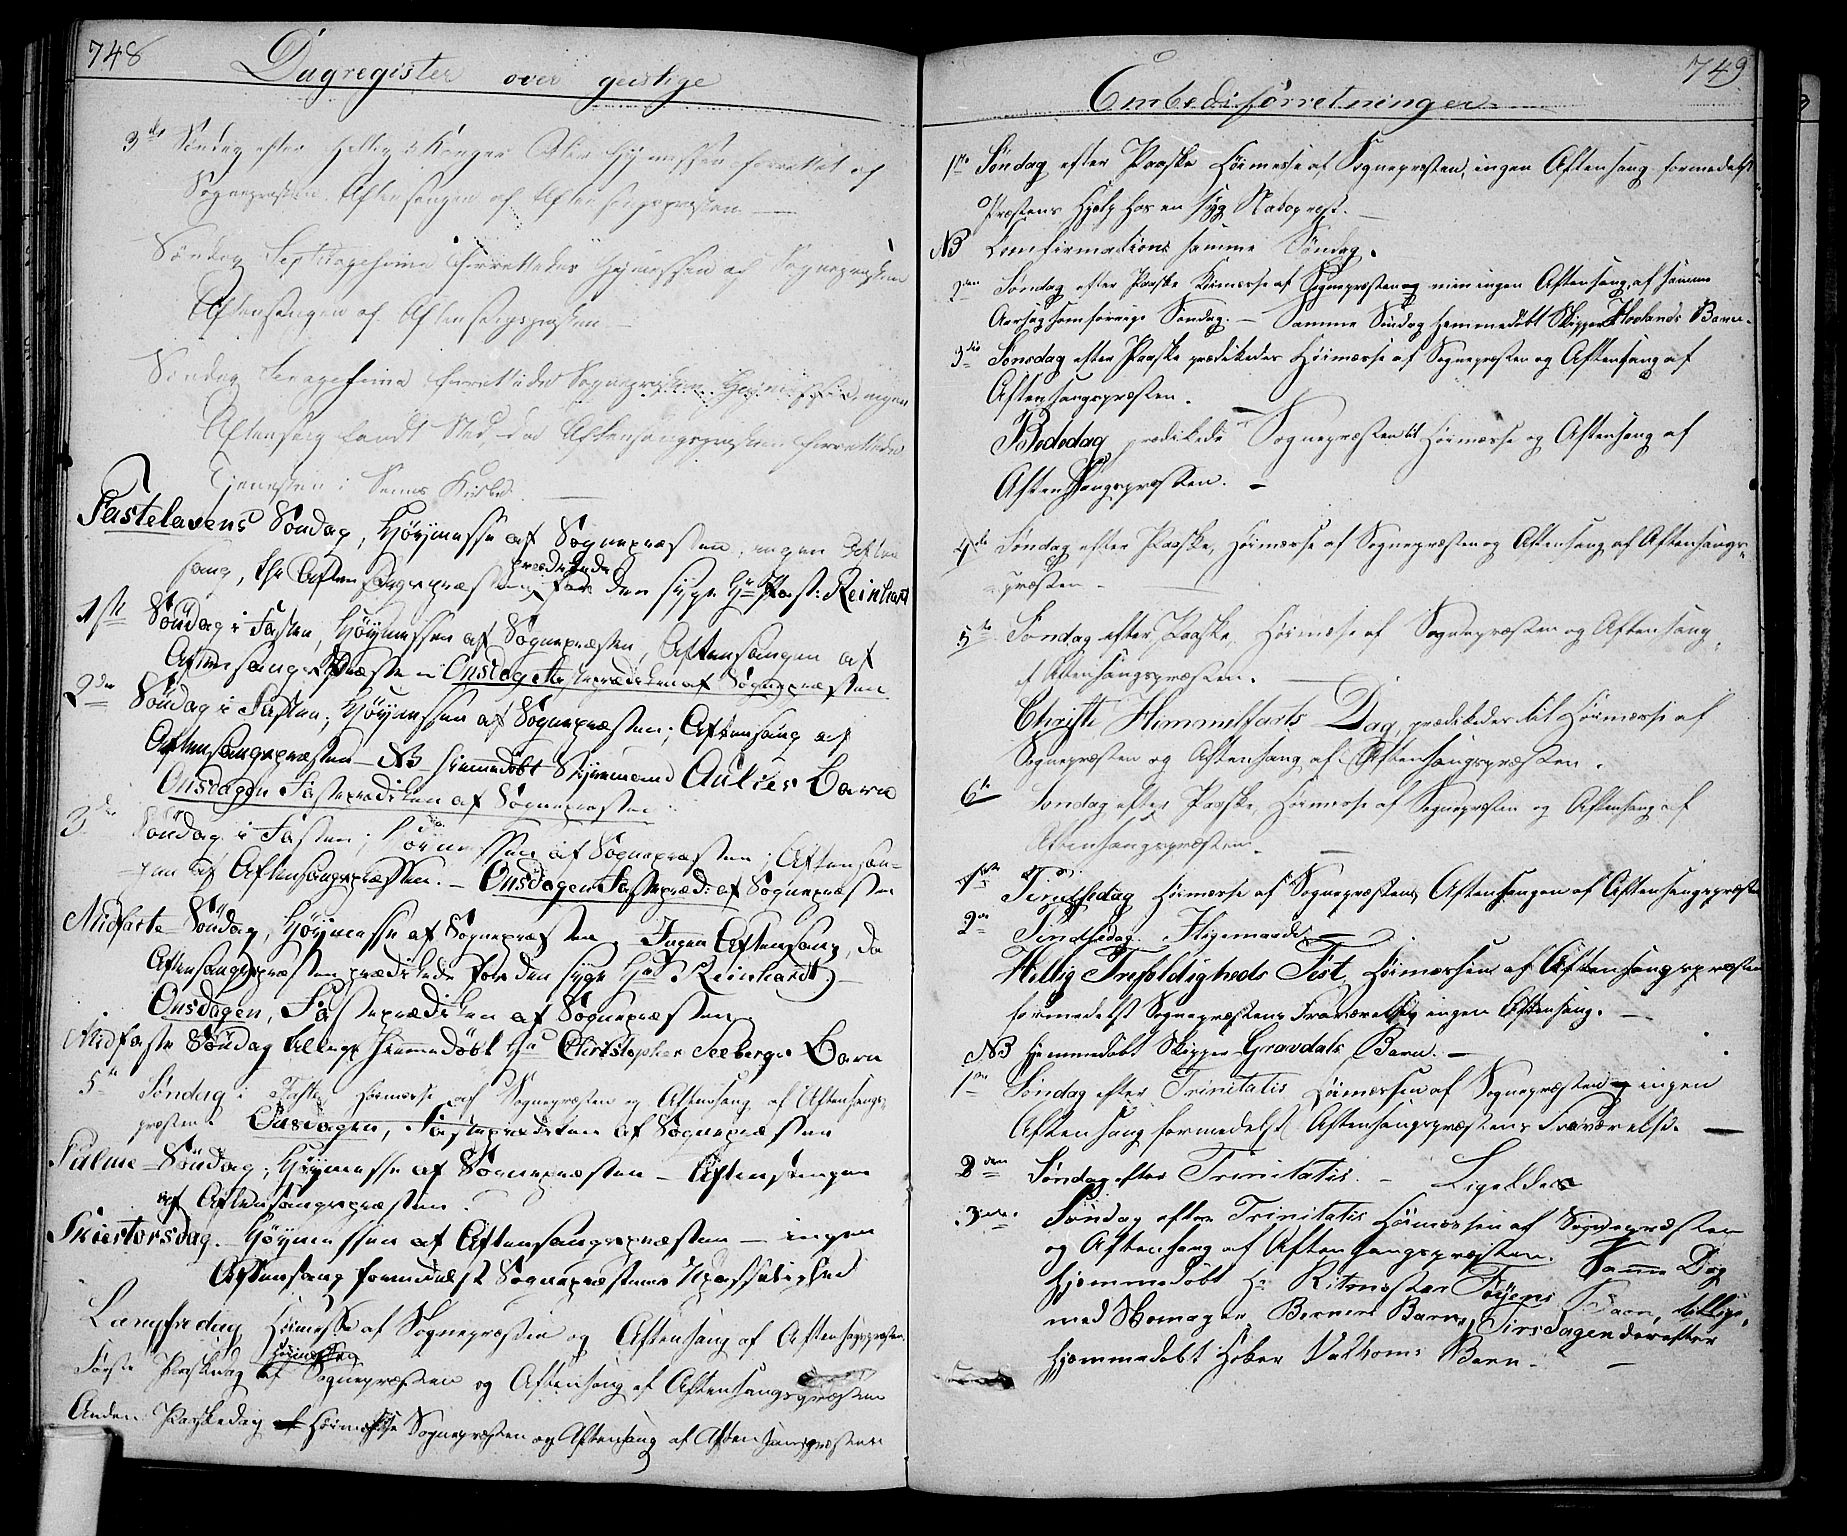 748
Dagregister over geistlige
3de Søndag efter Hellig 3 Konger Høymessen forrettet af
Sognepræsten. Aftensangen af Aftensangspræsten
Søndag Septuagesima forrettedes Høymessen af Sognepræsten
Aftensangen af Aftensangspræsten
Søndag Sexagesima forrettedes Sognepræsten Høymessen, ingen
Aftensang fandt Sted da Aftensangspræsten forrettede
Tjenesten i Kirke
Fastelavens Søndag, Høymesse af Sognepræsten, ingen Aften
sang, thi Aftensangspræsten prædikede for den syge Hr Past: Reinhart
1ste Søndag i Fasten, Høymessen af Sognepræsten, Aftensangen af
Aftensangspræsten Onsdagen Fasteprædiken af Sognepræsten
2den Søndag i Fasten, Høymessen af Sognepræsten; Aftensang af
Aftensangspræsten – NB hiemmedøbt Barn
Onsdagen Fasteprædiken af Sognepræsten
3de Søndag i Fasten; Høymessen af Sognepræsten; Aftensan-
gen af Aftensangspræsten. – Onsdagen Fastepræd: af Sognepræsten
Midfaste Søndag, Høymesse af Sognepræsten, Ingen Aftensang, da
Aftensangspræsten prædikede for den syge Hr P. Reinhardt
Onsdagen, Fasteprædiken af Sognepræsten
Midfaste Søndag hiemmedøbt Hr Christopher Seebergs Barn
5te Søndag i Faste Høimesse af Sognepræsten og Aftensang af Aftensangs-
præsten. Onsdagen, Fasteprædiken af Sognepræsten
Palme-Søndag; Høymesse af Sognepræsten – Aftensangen
af Aftensangspræsten.
Skiertorsdag. Høymessen af Aftensangspræsten – ingen
Aftensang formedelst Sognepræstens Upasselighed
Langfredag Høimesse af Sognepræsten og Aftensang af Aftensangspræsten.
Første Paaskedag Høimessen af Sognepræsten og Aftensang af Aftensangspræsten
Anden Paaskedag Høimesse Sognepræsten og Aftensang af Aftensangspræsten
749
Embedsforretninger
1ste Søndag efter Paaske Høimesse af Sognepræsten, ingen Aftensang formedelst
Præstens Hjelp hos en syg Nabopræst.
NB Confirmation samme Søndag.
2den Søndag efter Paaske Høimesse af Sognepræsten men ingen Aftensang, af samme
Aarsag som forrige Søndag. – Samme Søndag hemmedøbt Skipper Hovlands Barn.
3die Sønsdag efter Paaske prædikedes Høimesse af Sognepræsten og Aftensang af
Aftensangspræsten.
Bededag prædikede Sognepræsten til Høimesse og Aftensang af
Aftensangspræsten. –
4de Søndag efter Paaske, Høimesse af Sognepræsten og Aftensang af Aftensangs-
præsten –
5te Søndag efter Paaske, Høimesse af Sognepræsten og Aftensang
af Aftensangspræsten.
Christi Himmelfarts Dag, prædikedes til Høimesse af
Sognepræsten og Aftensang af Aftensangspræsten.
6te Søndag efter Paaske, Høimesse af Sognepræsten og Aftensang af
Aftensangspræsten.
1ste Pindsedag Høimesse af Sognepræsten, Aftensangen af Aftensangspræsten
2den Pindsedag. Ligemaade. –
Hellig Trefoldigheds Fest, Høimessen af Aftensangspræsten
formedelst Sognepræstens Fraværelse, ingen Aftensang. –
NB Hjemmedøbt Skipper Gravdals Barn. –
1ste Søndag efter Trinitatis Høimessen af Sognepræsten, ingen
Aftensang formedelst Aftensangspræstens Fraværelse. –
2den Søndag efter Trinitatis. – Ligeledes
3die. Søndag efter Trinitatis Høimessen af Sognepræsten
og Aftensang af Aftensangspræsten. Samme Dag
hjemmedøbt Hr Ritmester Føyens Barn, tillige-
med Barn, Tirsdagen derefter
hjemmedøbt Barn. –